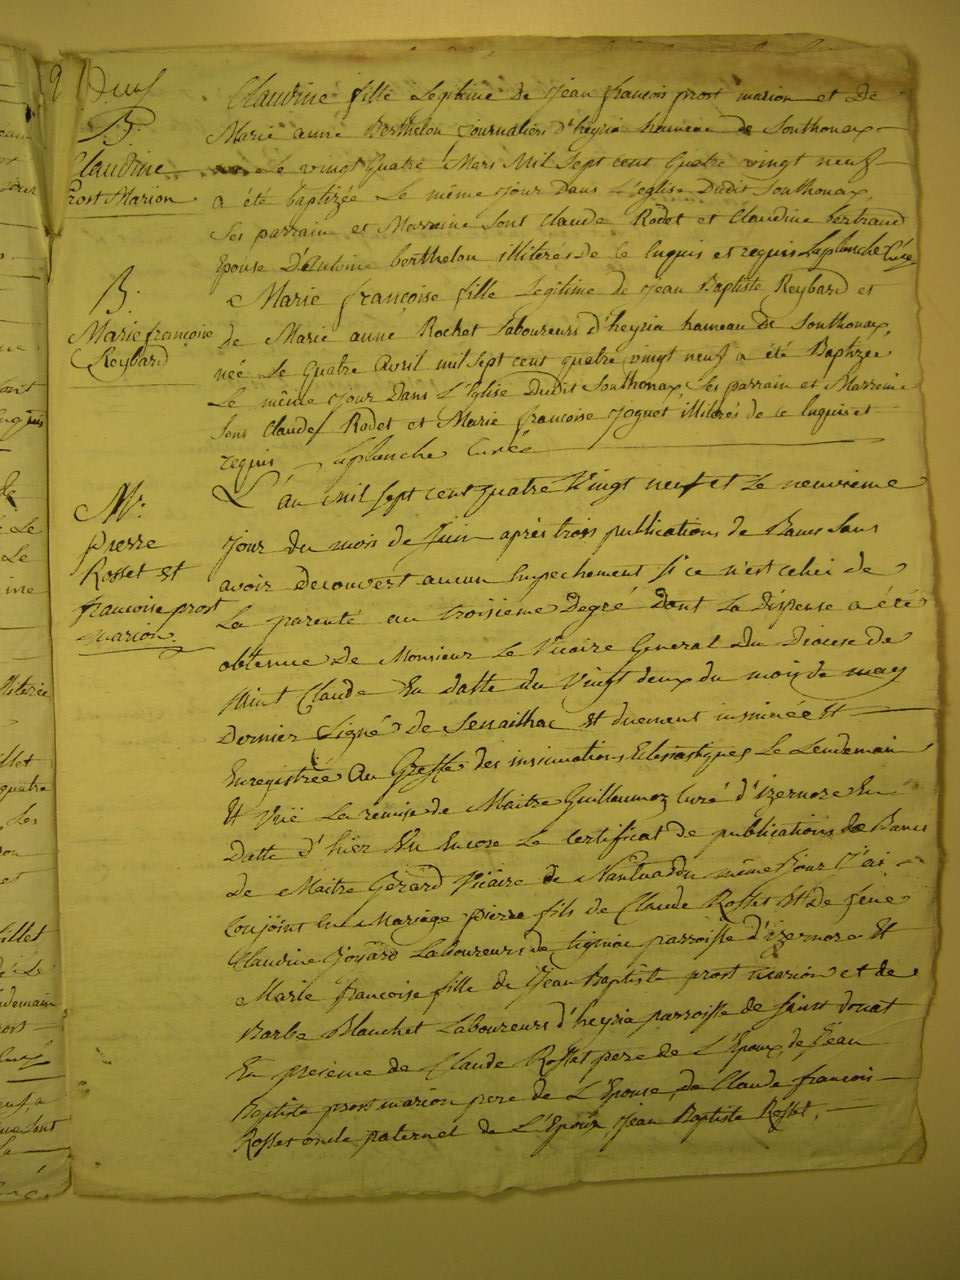 9
Neuf
B.
Claudine
Prost Marion
Claudine fille Legitime de Jean francois prost marion et De
Marie anne Berthelon journaliers d'heyria hameau de Southonax
née Le vingt quatre Mars Mil Sept cent quatre vingt neuf
a été baptizée Le même jour Dans L'eglise Dudit Southonax
Ses parrain et Marraine Sont Claude Rodet et Claudine bertrand
Epouse D'antoine berthelon illiterés de ce Enquis et requis Laplanche Curé
B.
Marie françoise
Reybard
Marie françoise fille Legitime de Jean Baptiste Reybard et
de Marie anne Rochet Laboureurs d'heyria hameau de Southonax,
née Le quatre avril mil sept cent quatre vingt neuf a été Baptizée
Le même jour Dans L'Eglise Dudit Southonax Ses parrain et Marraine
Sont Claude Rodet et Marie francoise Joguet illiterés de ce Enquis et
requis Laplanche Curé
M.
pierre
Rosset et
francoise prost
marion.
L'an Mil sept cent quatre Vingt neuf et Le neuvieme
jour du mois de Juin après trois publications de Bans Sans
avoir Decouvert aucun Empechement si ce n'est celui de
La parenté au troisieme Degré Dont La Dispense a été
obtenue de Monsieur Le Vicaire General Du Diocese de
Saint Claude En datte du Vingt deux du mois de may
Dernier Signé de Senailhac et duement insinuée et
Enregistrée au Greffe des insinuations Eclesiastiques Le Lendemain
et Vuë La remise de Maitre Guillaumoz Curé d'izernore En
Datte d'hïer Vu Encore Le certificat de publications de Bans
de Maitre Gérard Vicaire de Nantua du même jour J'ai
conjoint En Mariage pierre fils de Claude Rosset et De feue
Claudine Goyard Laboureurs de lignia parroisse d'izernore et
Marie francoise fille de Jean Baptiste prost marion et de
Barbe Blanchet Laboureurs d'heyria parroisse de saint donat
En presence de Claude Rosset pere de L'Epoux, de Jean
Baptiste prost marion pere de L'Epouse, de Claude francois
Rosset oncle paternel de L'Epoux, Jean Baptiste Rosset,